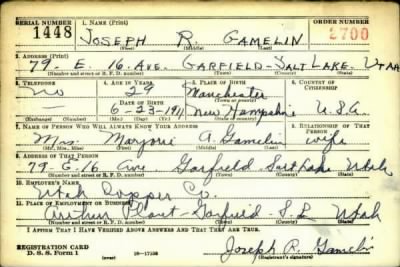 SERIAL NUMBER 1. NAME (Print) ORDER NUMBER
1448 JOSEPH R. GAMELIN 2700
(First) (Middle) (Last)
2. ADDRESS (Print)
79. E. 16 AVE. GARFIELD - SALT LAKE. UTAH
(Number and street or R. F. D. number) (Town) (County) (State)
3. TELEPHONE 4. AGE IN YEARS 5. PLACE OF BIRTH 6. COUNTRY OF CITIZENSHIP
No 29 Manchester
DATE OF BIRTH (Town or county)
6-23-1911 New Hampshire U.S.A.
(Exchange) (Number) (Mo.) (Day) (Yr.) (State or country)
7. NAME OF PERSON WHO WILL ALWAYS KNOW YOUR ADDRESS 8. RELATIONSHIP OF THAT PERSON
Mrs. Marjorie A. Gamelin wife
(Mr., Mrs., Miss) (First) (Middle) (Last)
9. ADDRESS OF THAT PERSON
79-E-16 Ave. Garfield - Salt Lake Utah
(Number and street or R. F. D. number) (Town) (County) (State)
10. EMPLOYER'S NAME
Utah Copper Co.
11. PLACE OF EMPLOYMENT OR BUSINESS
Arthur Plant - Garfield - S.L. Utah
(Number and street or R. F. D. number) (Town) (County) (State)
I AFFIRM THAT I HAVE VERIFIED ABOVE ANSWERS AND THAT THEY ARE TRUE.
REGISTRATION CARD
D. S. S. Form 1 Joseph R. Gamelin
(Registrant's signature)